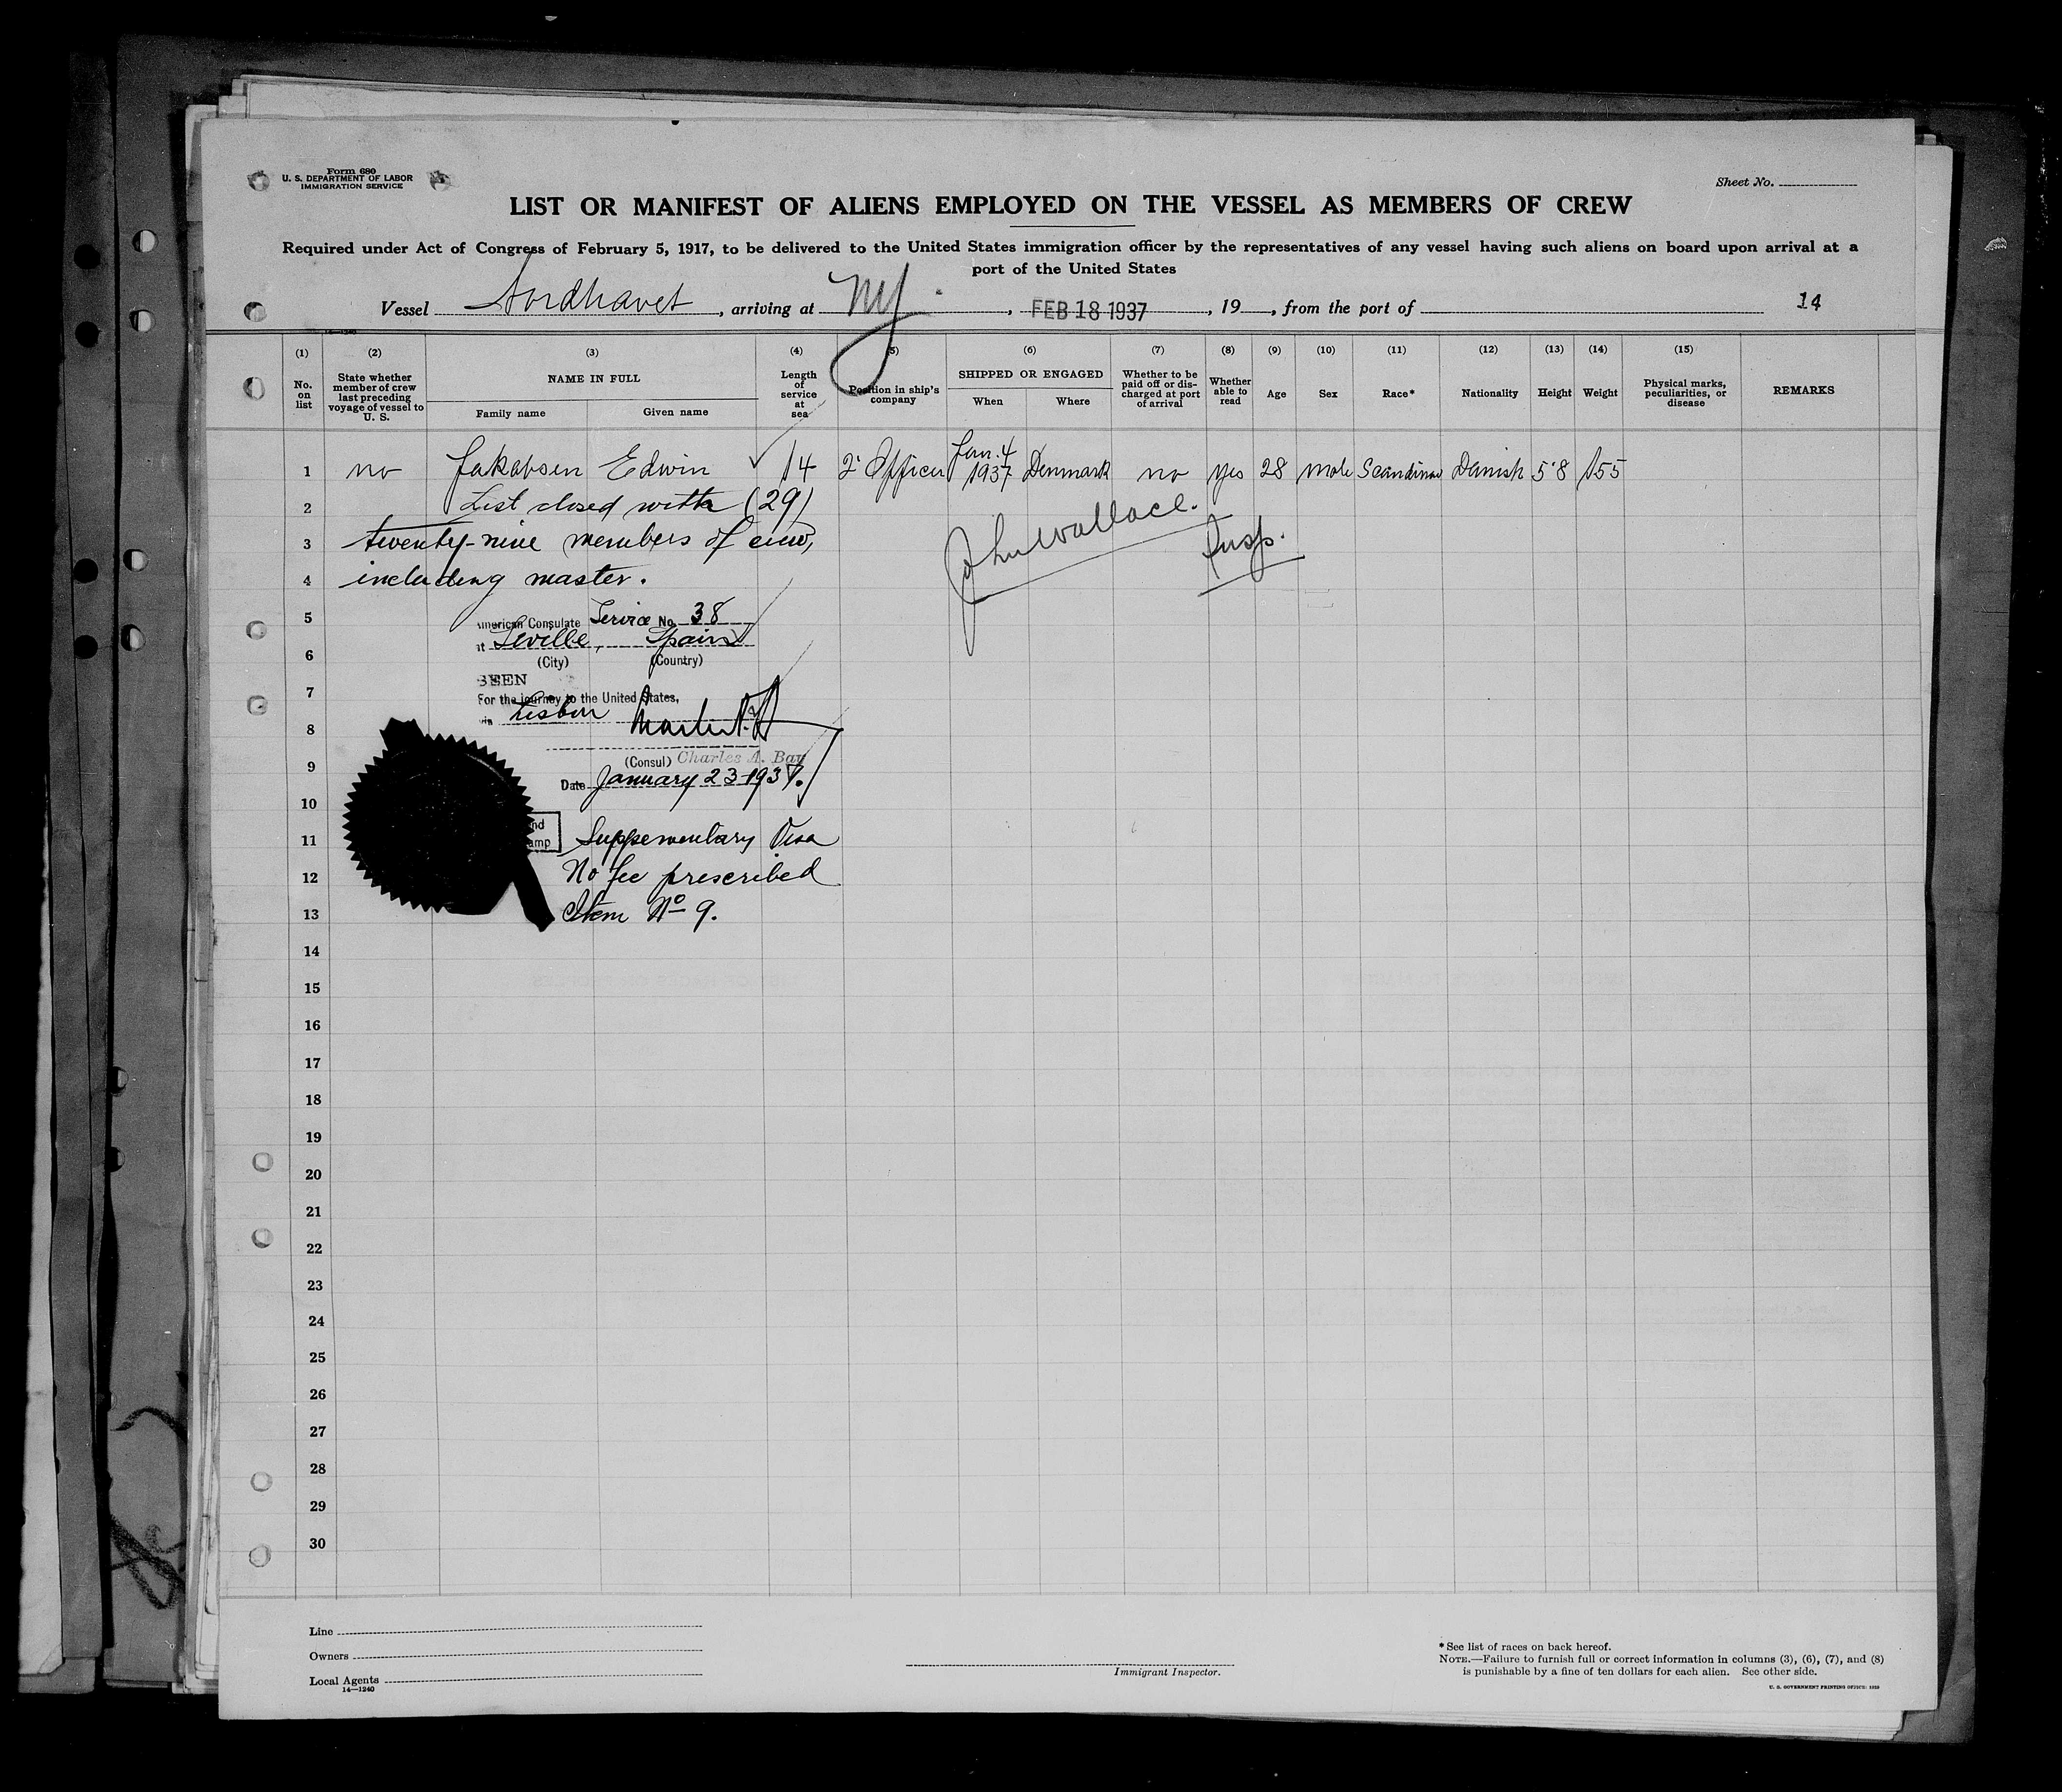 Form 680
U. S. DEPARTMENT OF LABOR
IMMIGRATION SERVICE
Sheet No.
LIST OR MANIFEST OF ALIENS EMPLOYED ON THE VESSEL AS MEMBERS OF CREW
Required under Act of Congress of February 5, 1917, to be delivered to the United States immigration officer by the representatives of any vessel having such aliens on board upon arrival at a
port of the United States
Vessel Nordhavet, arriving at NY, FEB 18 1937, 19, from the port of 14
(1) (2) (3) (4) (5) (6) (7) (8) (9) (10) (11) (12) (13) (14) (15)
No. on list
State whether member of crew last preceding voyage of vessel to U. S.
NAME IN FULL
Family name Given name
Length of service at sea
Position in ship's company
SHIPPED OR ENGAGED
When Where
Whether to be paid off or discharged at port of arrival
Whether able to read
Age
Sex
Race*
Nationality
Height
Weight
Physical marks, peculiarities, or disease
REMARKS
1 no Jakobsen Edwin 14 2' Officer Jan. 4 1937 Denmark no yes 28 male Scandinav Danish 5'8 155
2 List closed with (29)
3 twenty-nine members of crew,
4 including master.
John Wallace.
Insp.
5 American Consulate Service No. 38
at Seville, Spain
6 (City) (Country)
SEEN
7 For the journey to the United States,
via Lisbon
8
(Consul) Charles A. Bay
9 Date January 23-1937.
10
nd
11 amp Suppementary Visa
12 No fee prescribed
13 Item No 9.
14
15
16
17
18
19
20
21
22
23
24
25
26
27
28
29
30
Line
Owners
Local Agents
14—1240
Immigrant Inspector.
*See list of races on back hereof.
NOTE.—Failure to furnish full or correct information in columns (3), (6), (7), and (8)
is punishable by a fine of ten dollars for each alien. See other side.